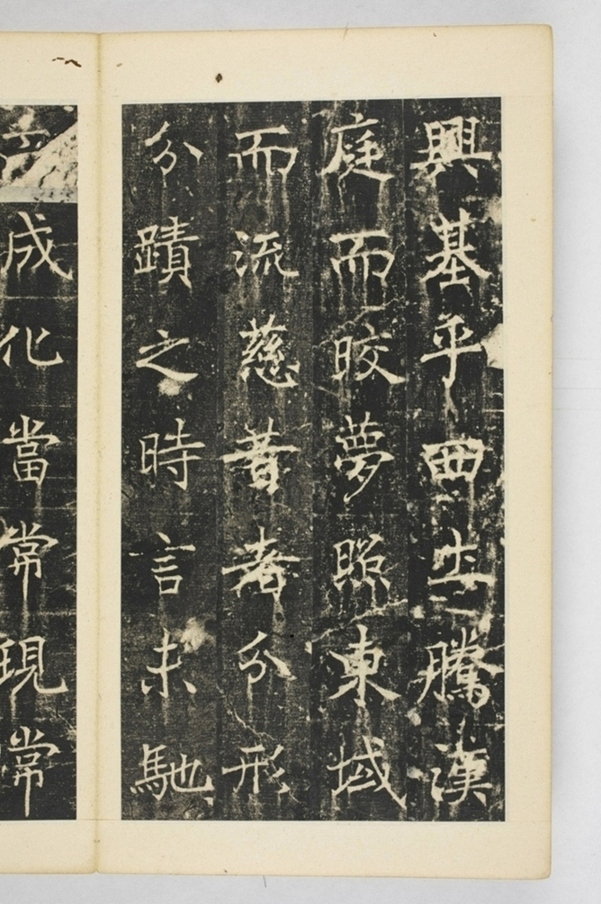 興基乎西土騰漢
庭而皎夢照東域
而流慈昔者分形
分蹟之時言未馳
而成化當常現常